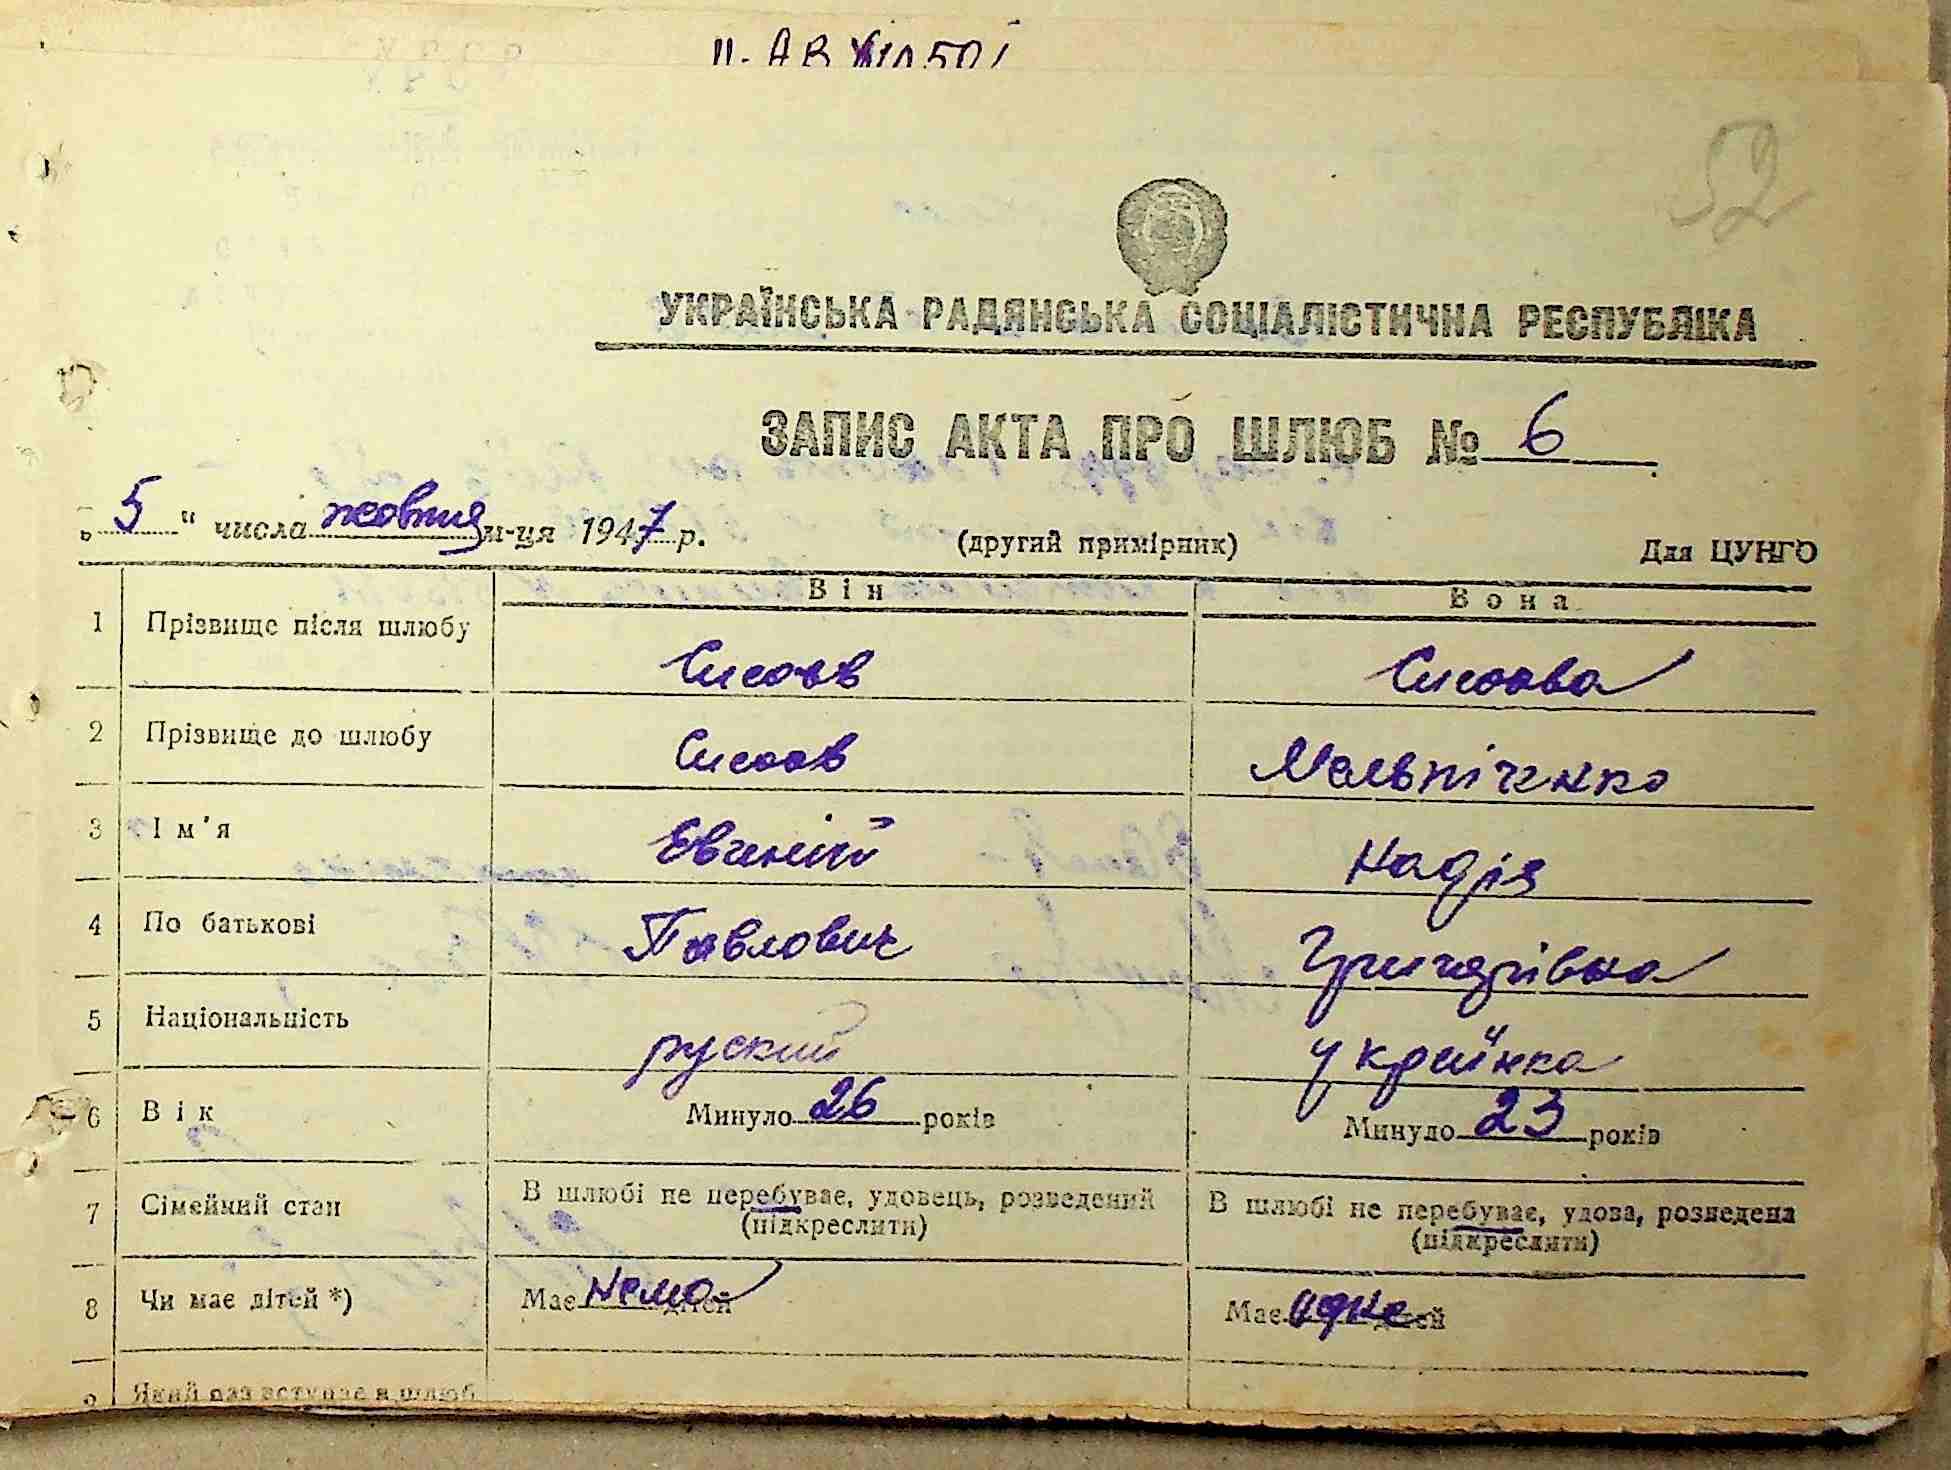 52
УКРАЇНСЬКА РАДЯНСЬКА СОЦІАЛІСТИЧНА РЕСПУБЛІКА
ЗАПИС АКТА ПРО ШЛЮБ № 6
„ 5 “ числа жовтня м-ця 1947 р. (другий примірник) Для ЦУНГО
Він Вона
1 Прізвище після шлюбу Сисоєв Сисоєва
2 Прізвище до шлюбу Сисоєв Мельніченко
3 Ім'я Евгеній Надія
4 По батькові Павлович Григорівна
5 Національність руский українка
6 Вік Минуло 26 років Минуло 23 років
7 Сімейний стан В шлюбі не перебуває, удовець, розведений В шлюбі не перебуває, удова, розведена
(підкреслити) (підкреслити)
8 Чи має дітей *) Має Нема дітей Має одне дітей
9 Який раз вступає в шлюб